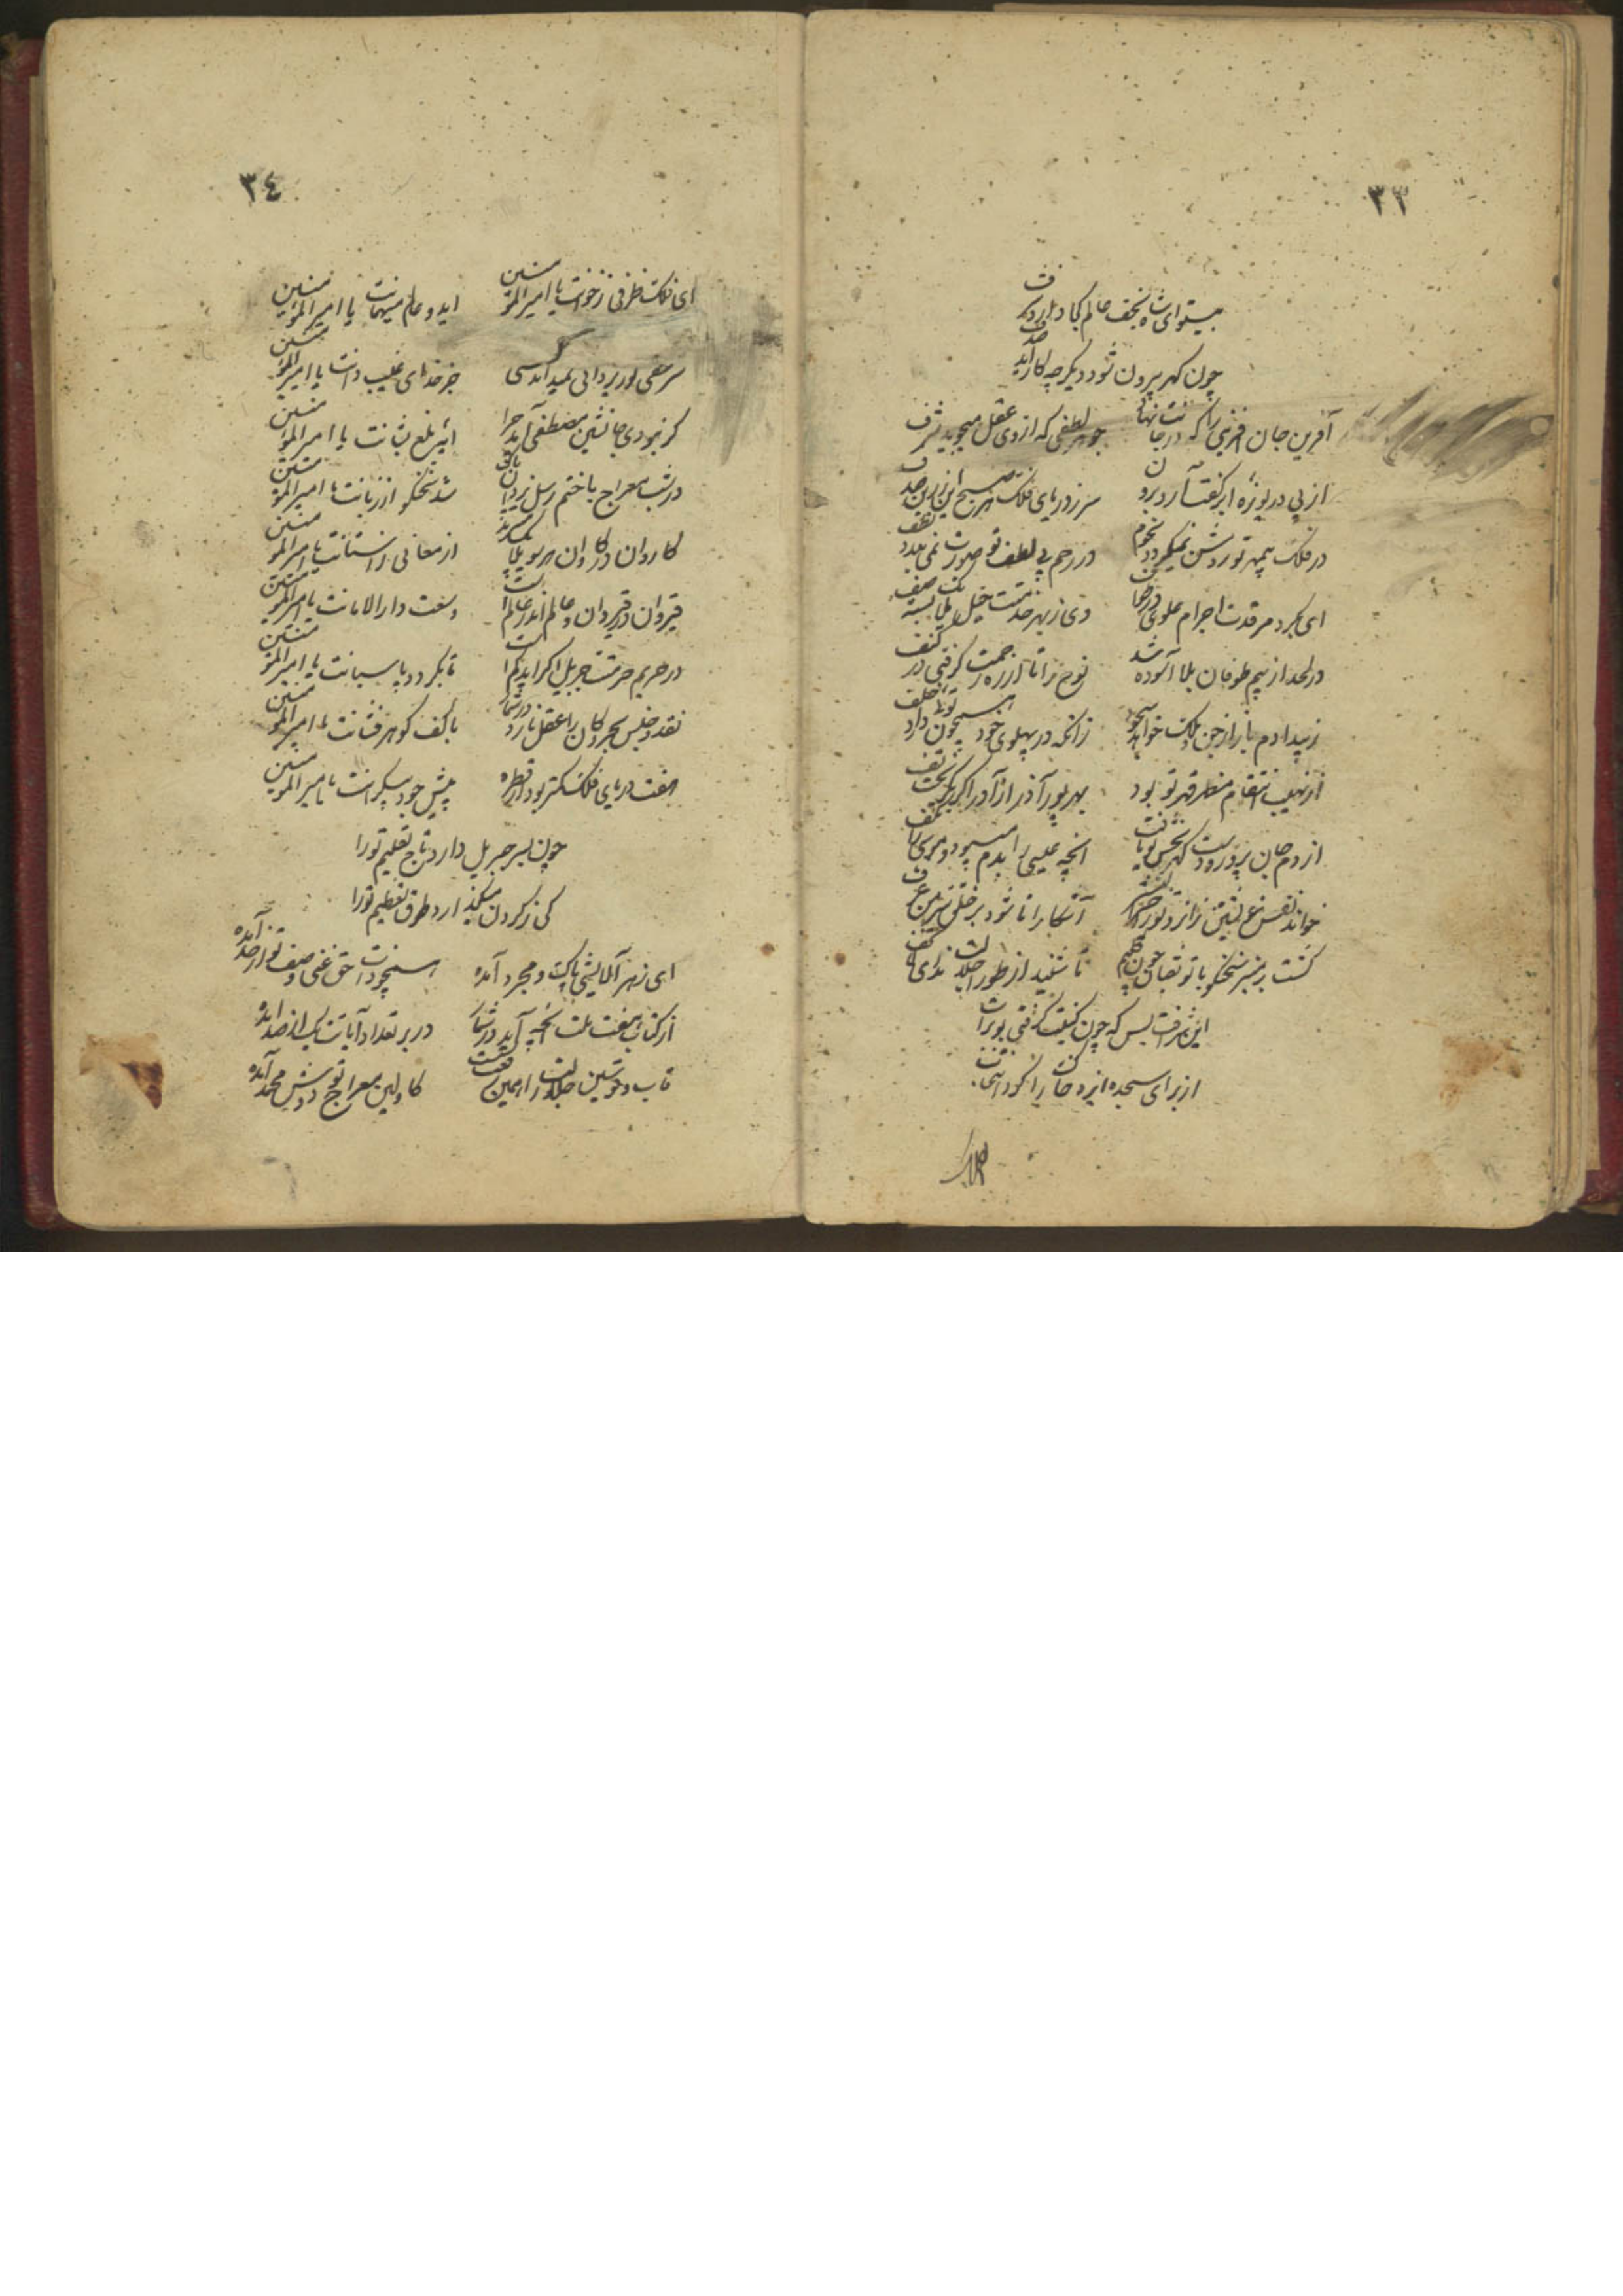 ٣٣
بیتو ای شاه نجف عالم کجا دارد شرف
چون کهر بیرون شود دیکر چه کار آید صدف
آفرین جان آفرینی را که در جانت نهاد
جوهر لطفی که از وی عقل میجوید شرف
از پی دریوزه ابر کفت آرد برون
سر ز دریای فلک هر صبح این زرین صدف
در فلک بیمهر تو روشن نمیکردد نجوم
در رحم بی لطف تو صورت نمی بندد نطف
ای بکرد مرقدت اجرام علوی در طواف
وی ز بهر خدمتت خیل ملایک بسته صف
در لحد از بیم طوفان بلا آسوده شد
نوح را تا از ره رحمت کرفتی در کنف
زانکه در پهلوی خود همچون تو دارد خلف
از نهیب انتقام مظهر قهر تو بود
بهر پور آذر از آذر اکر بکریخت تف
از دم جان پرور و دست کهر بخش تو یافت
آنچه عیسی را بدم میبود و موسی را بکف
آشکارا تا شود بر خلق سر من عرف
کشت بر منبر سخنکو با تو ثعبان چون کلیم
تا شنید از طور اجلالت ندای لا تخف
این شرافت بس که چون کتفت کرفتی بو تراب
از برای سجده ایزد خاک را کرد انتخاب
٣٤
ای فلک ظرفی ز خوانت یا امیر المؤمنین
ای دو عالم میهمانت یا امیر المؤمنین
سر مخفی نور یزدانی نمیداند کسی
جز خدای غیب دانت یا امیر المؤمنین
کر نبودی جانشین مصطفی آمد چرا
آیه بلغ بشانت یا امیر المؤمنین
در شب معراج با ختم رسل یزدان پاک
شد سخنکو از زبانت یا امیر المؤمنین
کاروان در کاروان هر سو ملایک میبرند
ارمغانی ز آستانت یا امیر المؤمنین
قیروان در قیروان و عالم اندر عالم است
وسعت دار الامانت یا امیر المؤمنین
در حریم حرمتت جبریل اکر آید کم است
تا بکردد پاسبانت یا امیر المؤمنین
نقد و جنس بحر و کان را عقل نارد در شمار
با کف کوهر فشانت یا امیر المؤمنین
هفت دریای فلک کمتر بود از قطره
پیش جود بیکرانت یا امیر المؤمنین
چون بسر جبریل دارد تاج تعلیم تو را
کی ز کردن میکند او طوق تعظیم تو را
ای ز هر آلایشی پاک و مجرد آمده
همچو ذات حق غنی وصف تو از حد آمده
از کتاب هفت ملت آنچه آید در شمار
در بر تعداد آیاتت یک از صد آمده
قاب و قوسین جلالت را همین رفعت بس است
کاولین معراج تو دوش محمد آمده